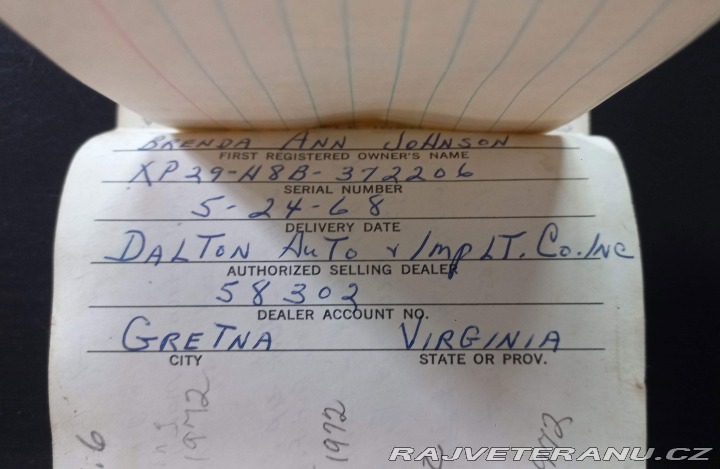 BRENDA ANN JOHNSON
FIRST REGISTERED OWNER'S NAME
XP29-H8B-372206
SERIAL NUMBER
5-24-68
DELIVERY DATE
DALTON AUTO & IMPLT. CO. INC
AUTHORIZED SELLING DEALER
58302
DEALER ACCOUNT NO.
GRETNA VIRGINIA
CITY STATE OR PROV.
1972
1972
RAJVETERANU.CZ